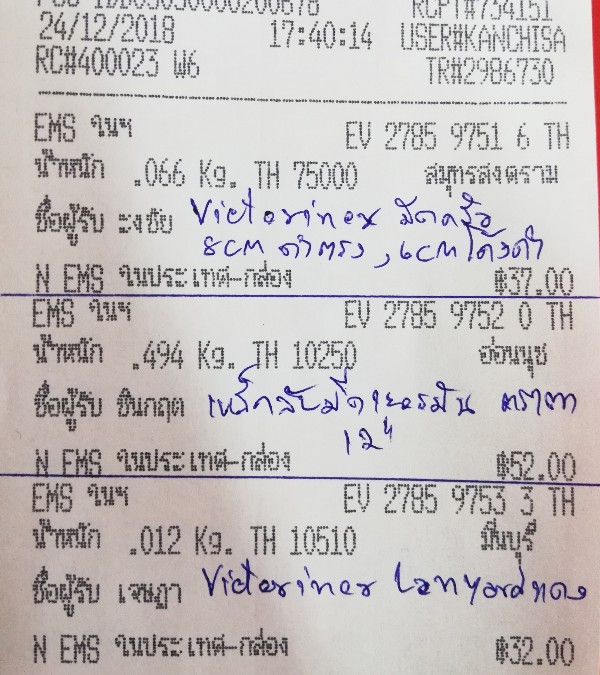 RCPT#734151
24/12/2018 17:40:14 USER#KANCHISA
RC#400023 W6 TR#2986730
EMS ในฯ EV 2785 9751 6 TH
น้ำหนัก .066 Kg. TH 75000 สมุทรสงคราม
ชื่อผู้รับ ะงชัย Victorinox มีดครัว
8cm ดำตรง , 6cm โค้งดำ
N EMS ในประเทศ-กล่อง ฿37.00
EMS ในฯ EV 2785 9752 0 TH
น้ำหนัก .494 Kg. TH 10250 อ่อนนุช
ชื่อผู้รับ ชินกฤต เหล็กลับมีดเยอรมัน ตราตา
12"
N EMS ในประเทศ-กล่อง ฿52.00
EMS ในฯ EV 2785 9753 3 TH
น้ำหนัก .012 Kg. TH 10510 มีนบุรี
ชื่อผู้รับ เจษฎา Victorinox Lanyard แดง
N EMS ในประเทศ-กล่อง ฿32.00